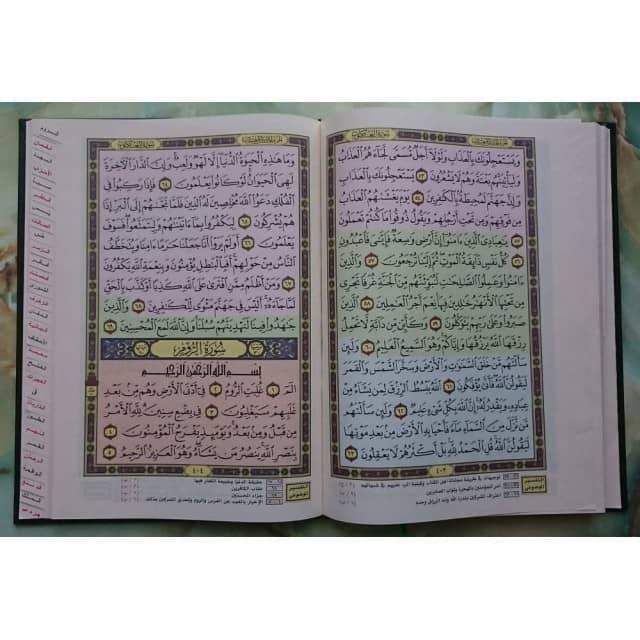 سُورَةُ العَنكَبُوتِ
وَيَسْتَعْجِلُونَكَ بِالْعَذَابِ وَلَوْلَا أَجَلٌ مُّسَمًّى لَّجَاءَهُمُ الْعَذَابُ
وَلَيَأْتِيَنَّهُم بَغْتَةً وَهُمْ لَا يَشْعُرُونَ ٥٣ يَسْتَعْجِلُونَكَ بِالْعَذَابِ
وَإِنَّ جَهَنَّمَ لَمُحِيطَةٌ بِالْكَافِرِينَ ٥٤ يَوْمَ يَغْشَاهُمُ الْعَذَابُ
مِن فَوْقِهِمْ وَمِن تَحْتِ أَرْجُلِهِمْ وَيَقُولُ ذُوقُوا مَا كُنتُمْ تَعْمَلُونَ
٥٥ يَاعِبَادِيَ الَّذِينَ ءَامَنُوا إِنَّ أَرْضِي وَاسِعَةٌ فَإِيَّايَ فَاعْبُدُونِ
٥٦ كُلُّ نَفْسٍ ذَائِقَةُ الْمَوْتِ ثُمَّ إِلَيْنَا تُرْجَعُونَ ٥٧ وَالَّذِينَ
ءَامَنُوا وَعَمِلُوا الصَّالِحَاتِ لَنُبَوِّئَنَّهُم مِّنَ الْجَنَّةِ غُرَفًا تَجْرِي
مِن تَحْتِهَا الْأَنْهَارُ خَالِدِينَ فِيهَا نِعْمَ أَجْرُ الْعَامِلِينَ ٥٨ الَّذِينَ
صَبَرُوا وَعَلَى رَبِّهِمْ يَتَوَكَّلُونَ ٥٩ وَكَأَيِّن مِّن دَابَّةٍ لَّا تَحْمِلُ
رِزْقَهَا اللَّهُ يَرْزُقُهَا وَإِيَّاكُمْ وَهُوَ السَّمِيعُ الْعَلِيمُ ٦٠ وَلَئِن
سَأَلْتَهُم مَّنْ خَلَقَ السَّمَاوَاتِ وَالْأَرْضَ وَسَخَّرَ الشَّمْسَ وَالْقَمَرَ
لَيَقُولُنَّ اللَّهُ فَأَنَّى يُؤْفَكُونَ ٦١ اللَّهُ يَبْسُطُ الرِّزْقَ لِمَن يَشَاءُ مِنْ
عِبَادِهِ وَيَقْدِرُ لَهُ إِنَّ اللَّهَ بِكُلِّ شَيْءٍ عَلِيمٌ ٦٢ وَلَئِن سَأَلْتَهُم
مَّن نَّزَّلَ مِنَ السَّمَاءِ مَاءً فَأَحْيَا بِهِ الْأَرْضَ مِن بَعْدِ مَوْتِهَا
لَيَقُولُنَّ اللَّهُ قُلِ الْحَمْدُ لِلَّهِ بَلْ أَكْثَرُهُمْ لَا يَعْقِلُونَ ٦٣
٤٠٣
التقسيم الموضوعي
أمر المؤمنين بالهجرة وثواب الصابرين
اعتراف المشركين بقدرة الله وأنه الرزاق وحده
سُورَةُ العَنكَبُوتِ
وَمَا هَذِهِ الْحَيَوةُ الدُّنْيَا إِلَّا لَهْوٌ وَلَعِبٌ وَإِنَّ الدَّارَ الْآخِرَةَ
لَهِيَ الْحَيَوَانُ لَوْ كَانُوا يَعْلَمُونَ ٦٤ فَإِذَا رَكِبُوا فِي
الْفُلْكِ دَعَوُا اللَّهَ مُخْلِصِينَ لَهُ الدِّينَ فَلَمَّا نَجَّاهُمْ إِلَى الْبَرِّ إِذَا
هُمْ يُشْرِكُونَ ٦٥ لِيَكْفُرُوا بِمَا ءَاتَيْنَاهُمْ وَلِيَتَمَتَّعُوا فَسَوْفَ
يَعْلَمُونَ ٦٦ أَوَلَمْ يَرَوْا أَنَّا جَعَلْنَا حَرَمًا ءَامِنًا وَيُتَخَطَّفُ
النَّاسُ مِنْ حَوْلِهِمْ أَفَبِالْبَاطِلِ يُؤْمِنُونَ وَبِنِعْمَةِ اللَّهِ يَكْفُرُونَ
٦٧ وَمَنْ أَظْلَمُ مِمَّنِ افْتَرَى عَلَى اللَّهِ كَذِبًا أَوْ كَذَّبَ بِالْحَقِّ
لَمَّا جَاءَهُ أَلَيْسَ فِي جَهَنَّمَ مَثْوًى لِّلْكَافِرِينَ ٦٨ وَالَّذِينَ
جَاهَدُوا فِينَا لَنَهْدِيَنَّهُمْ سُبُلَنَا وَإِنَّ اللَّهَ لَمَعَ الْمُحْسِنِينَ ٦٩
سُورَةُ الرُّومِ
بِسْمِ اللَّهِ الرَّحْمَنِ الرَّحِيمِ
الٓمٓ ١ غُلِبَتِ الرُّومُ ٢ فِي أَدْنَى الْأَرْضِ وَهُم مِّن بَعْدِ
غَلَبِهِمْ سَيَغْلِبُونَ ٣ فِي بِضْعِ سِنِينَ لِلَّهِ الْأَمْرُ
مِن قَبْلُ وَمِن بَعْدُ وَيَوْمَئِذٍ يَفْرَحُ الْمُؤْمِنُونَ ٤
بِنَصْرِ اللَّهِ يَنصُرُ مَن يَشَاءُ وَهُوَ الْعَزِيزُ الرَّحِيمُ ٥
٤٠٤
التقسيم الموضوعي
حقيقة الدنيا وطبيعة الكفار فيها
عقاب الكافرين
جزاء المحسنين
الإخبار بالغيب عن الفرس والروم وتحدي المشركين بذلك
الروم
لقمان
السجدة
الأحزاب